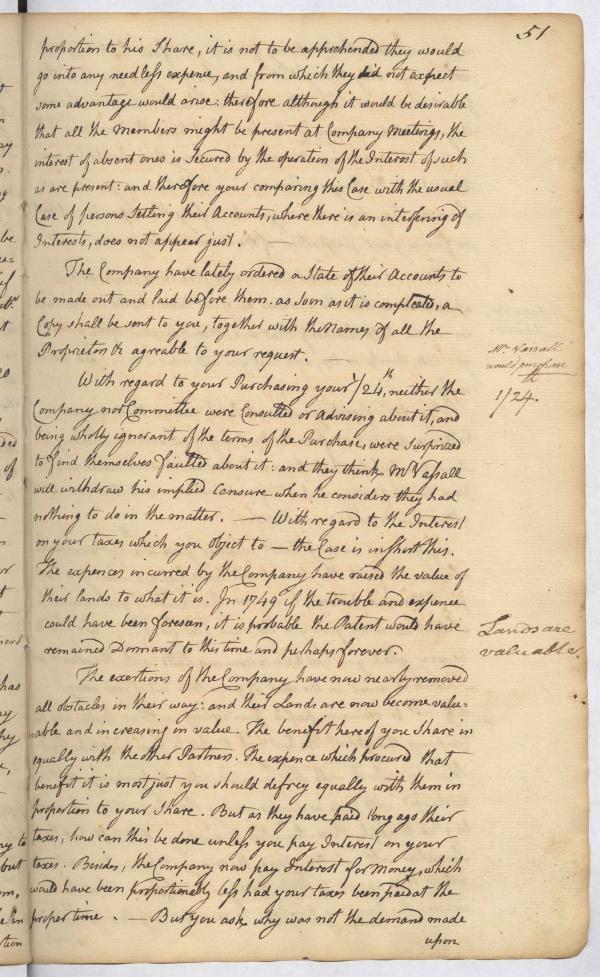 51
proportion to his Share, it is not to be apprehended they would
go into any needless expence, and from which they did not expect
some advantage would arise: therefore although it would be desirable
that all the Members might be present at Company Meetings, the
interest of absent ones is Secured by the operation of the Interest of such
as are present: and therefore your comparing this Case with the usual
Case of persons Settling their Accounts, where there is an interfering of
Interests, does not appear just. —
The Company have lately ordered a State of their Accounts to
be made out and laid before them. as soon as it is compleated, a
Copy shall be sent to you, together with the Names of all the
Proprietors &c agreable to your request. —
With regard to your Purchasing your 1/24th, neither the
Company nor Committee were Consulted or advising about it, and
being wholly ignorant of the terms of the Purchase, were Surprized
to find themselves faulted about it: and they think Mr Vassall
will withdraw his implied Censure when he considers they had
nothing to do in the matter. — With regard to the Interest
on your taxes which you object to — the Case is in Short this.
The expences incurred by the Company have raised the value of
their lands to what it is. In 1749 if the trouble and expence
could have been foreseen, it is probable the Patent would have
remained Dormant to this time and perhaps forever.
The exertions of the Company have now nearly removed
all obstacles in their way: and their Lands are now become valu=
=able and increasing in value. The benefit hereof you Share in
equally with the other Partners. The expence which procured that
benefit it is most just you should defrey equally with them in
proportion to your Share. But as they have paid long ago their
taxes, how can this be done unless you pay Interest on your
taxes. Besides, the Company now pay Interest for Money, which
would have been proportionally less had your taxes been paid at the
proper time. — But you ask why was not the demand made
upon
Mr Vassall
would purchase
th
1/24.
Lands are
valuable.